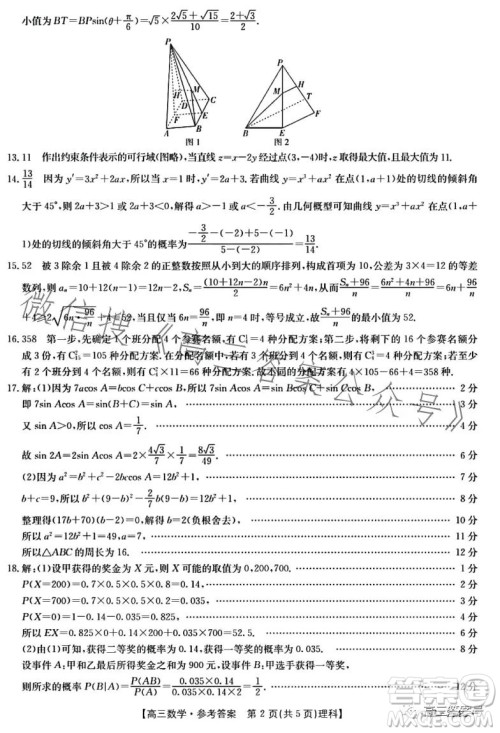 小值为 BT=BPsin(θ+π/6)=√5×(2√5+√15)/10=(2+√3)/2.
P
H
M
D
G
C
F
A
B
E
图1
P
M
H
T
F
B
E
图2
13.11 作出约束条件表示的可行域(图略),当直线 z=x-2y 经过点(3,-4)时,z 取得最大值,且最大值为 11.
14.13/14 因为 y'=3x²+2ax,所以当 x=1 时,y'=2a+3.若曲线 y=x³+ax² 在点(1,a+1)处的切线的倾斜角
大于 45°,则 2a+3>1 或 2a+3<0,即 a>-1 或 a<-3/2.由几何概型可知,曲线 y=x³+ax² 在点(1,a+
1)处的切线的倾斜角大于 45°的概率为 (-3/2-(-2)+5-(-1))/(5-(-2))=13/14.
15.52 被 3 除余 1 且被 4 除余 2 的正整数按照从小到大的顺序排列,构成首项为 10,公差为 3×4=12 的等差
数列,则 aₙ=10+12(n-1)=12n-2,Sₙ=(10+12n-2)n/2=6n²+4n,从而 (Sₙ+96)/n=6n+96/n
+4≥2√(6n·96/n)+4=52,当且仅当 6n=96/n,即 n=4 时,等号成立,故 (Sₙ+96)/n 的最小值为 52.
16.358 第一步,先确定 1 个班分配 4 个参赛名额,有 C₄¹=4 种分配方案;第二步,利用挡板法,将剩下的 16 个参赛名额分
成 3 份,有 C₁₅²=105 种分配方案.
17.解:(1)因为 7acos A=bcos C+ccos B,所以 7sin Acos A=sin Bcos C+sin Ccos B, 2 分
即 7sin Acos A=sin(B+C)=sin A. 3 分
又 sin A>0,所以 cos A=1/7. 4 分
故 sin 2A=2sin Acos A=2×4√3/7×1/7=8√3/49. 6 分
(2)因为 a²=b²+c²-2bccos A,a=7, 7 分
b+c=9,所以 b²+(9-b)²-2/7b(9-b)=7². 8 分
整理得(17b+70)(b-2)=0,解得 b=2(负根舍去), 10 分
所以△ABC 的周长为 16. 12 分
18.解:(1)设甲获得的奖金为 X 元,则 X 可能的取值为 0,200,700. 1 分
P(X=200)=0.7×0.5×0.5×0.8=0.14, 2 分
P(X=700)=0.7×0.5×0.5×0.2=0.035, 3 分
P(X=0)=1-0.14-0.035=0.825, 5 分
所以 EX=0.825×0+0.14×200+0.035×700=52.5. 6 分
(2)由(1)可知,获得二等奖的概率为 0.14,获得一等奖的概率为 0.035. 8 分
设事件 A:甲和乙最后所得奖金之和为 900 元,设事件 B:甲获得一等奖,
则所求的概率 P(B|A)=P(AB)/P(A)
【高三数学·参考答案 第 2 页(共 5 页)理科】